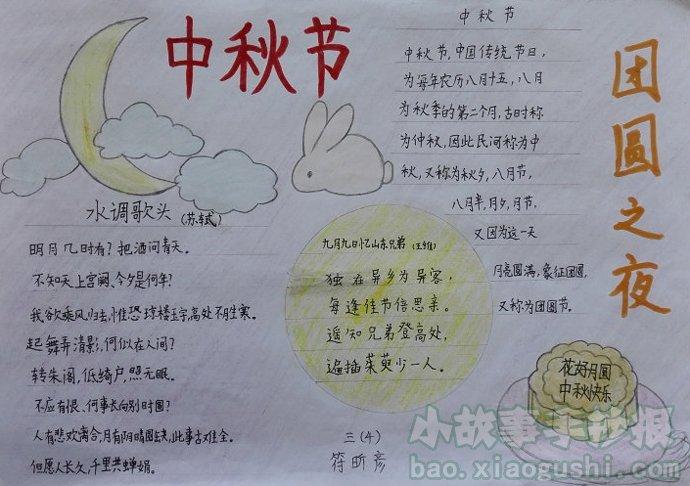 中秋节
中秋节
中秋节,中国传统节日,
为每年农历八月十五,八月
为秋季的第二个月,古时称
为仲秋,因此民间称为中
秋,又称为秋夕,八月节,
八月半,月夕,月节,
又因为这一天
月亮圆满,象征团圆,
又称为团圆节。
团圆之夜
水调歌头(苏轼)
明月几时有?把酒问青天。
不知天上宫阙,今夕是何年?
我欲乘风归去,惟恐琼楼玉宇,高处不胜寒。
起舞弄清影,何似在人间?
转朱阁,低绮户,照无眠。
不应有恨、何事长向别时圆?
人有悲欢离合,月有阴晴圆缺,此事古难全。
但愿人长久,千里共婵娟。
九月九日忆山东兄弟(王维)
独在异乡为异客,
每逢佳节倍思亲。
遥知兄弟登高处,
遍插茱萸少一人。
三(4)
符昕彦
花好月圆
中秋快乐
小故事手抄报
bao.xiaogushi.com